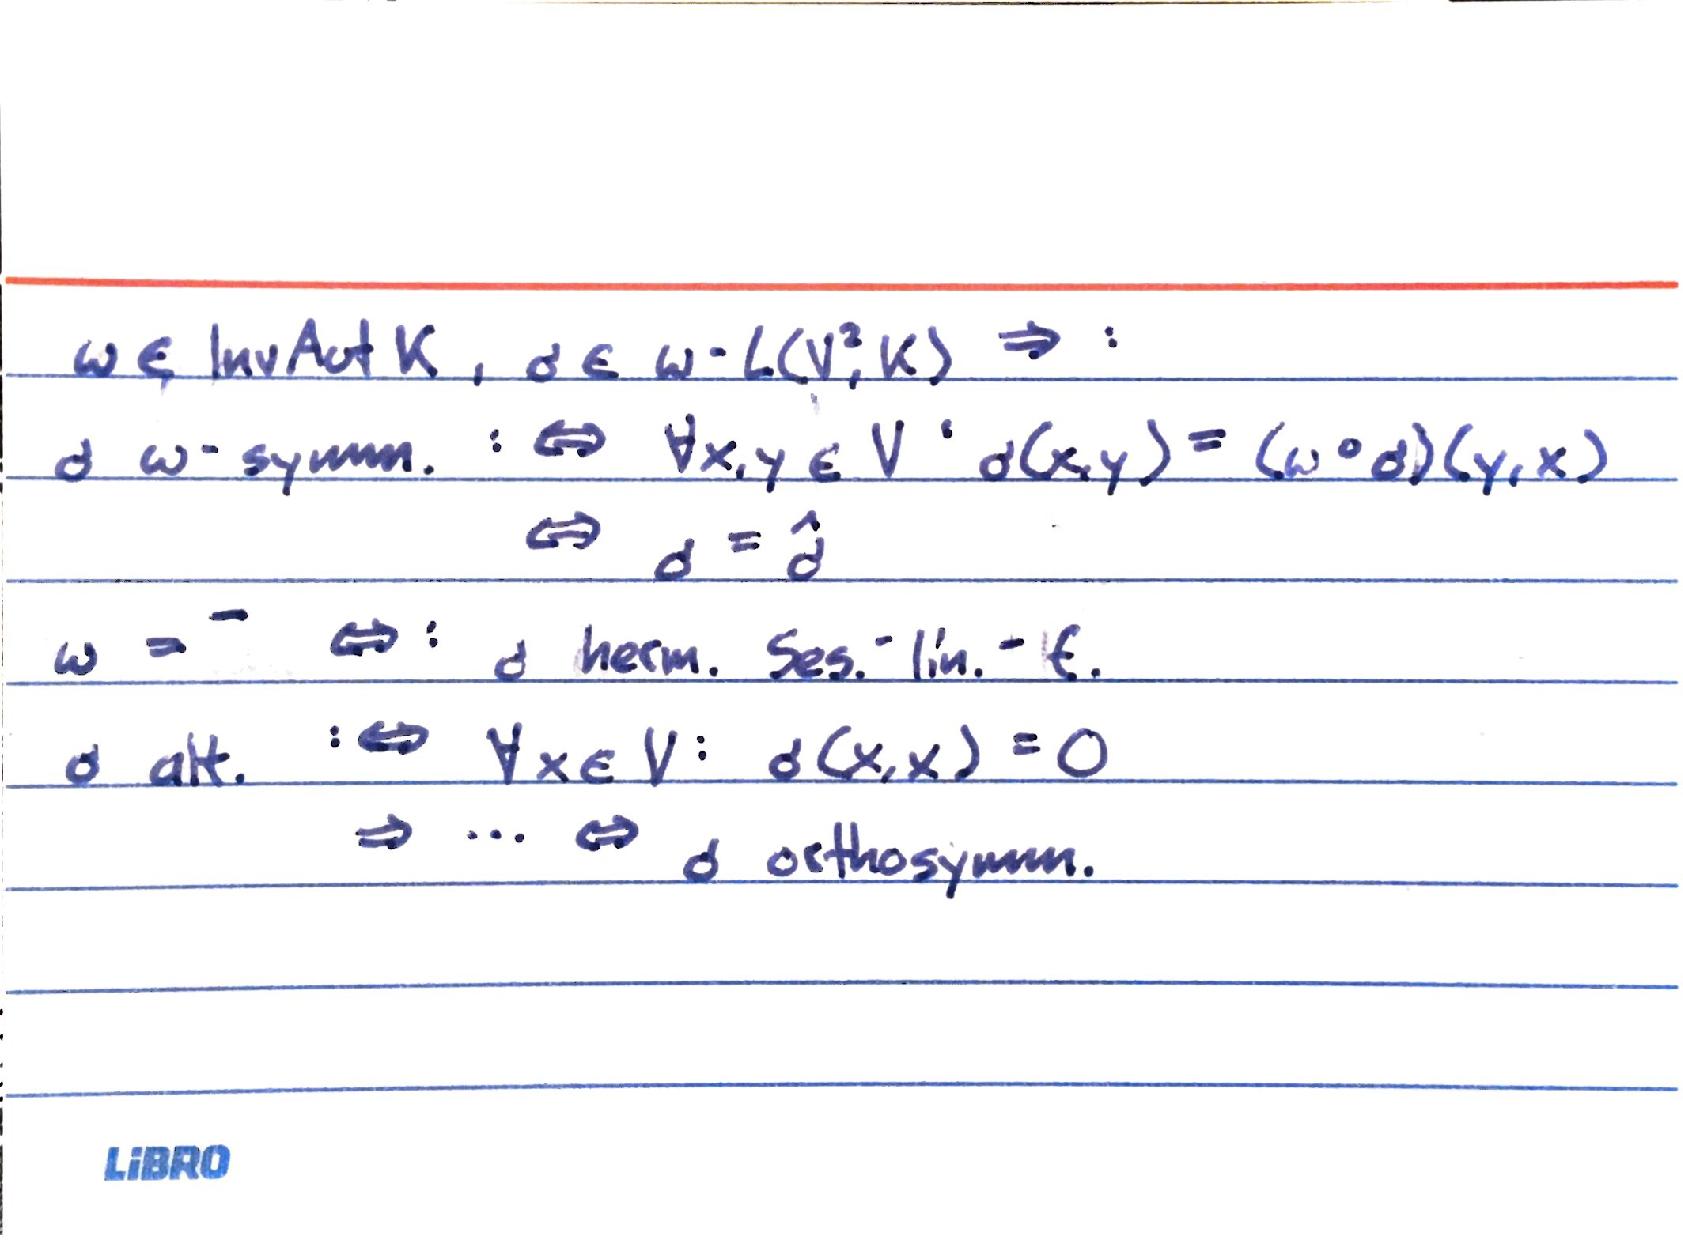 ω ∈ InvAut K, σ ∈ ω-L(V²,K) ⇒ :
σ ω-symm. :⇔ ∀x,y ∈ V : σ(x,y) = (ω∘σ)(y,x)
⇔ σ = σ̂
ω = ¯ ⇔: σ herm. Ses.-lin.-f.
σ alt. :⇔ ∀x∈V: σ(x,x) = 0
⇒ ... ⇔ σ orthosymm.
LiBRO